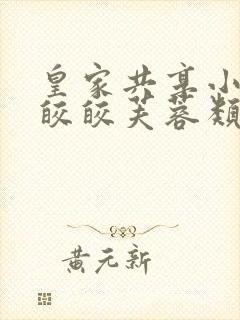 皇家共享小
皎皎芙蓉颓
黄元新